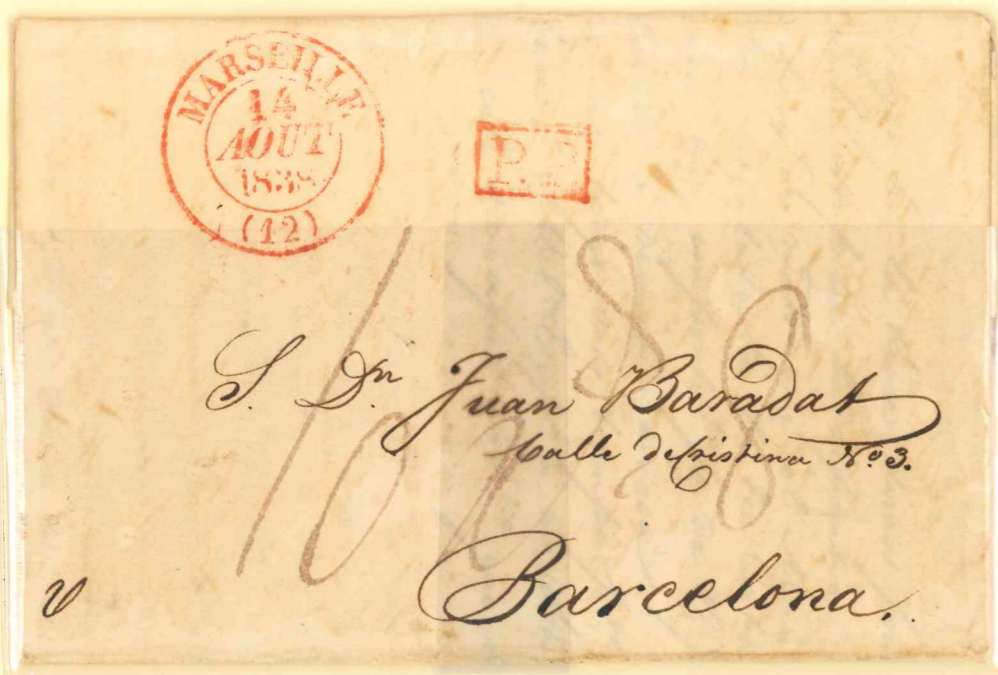 MARSEILLE
14
AOUT
1838
(12)
P.P
S. Dn Juan Baradat
Calle de Cristina No 3.
Barcelona.